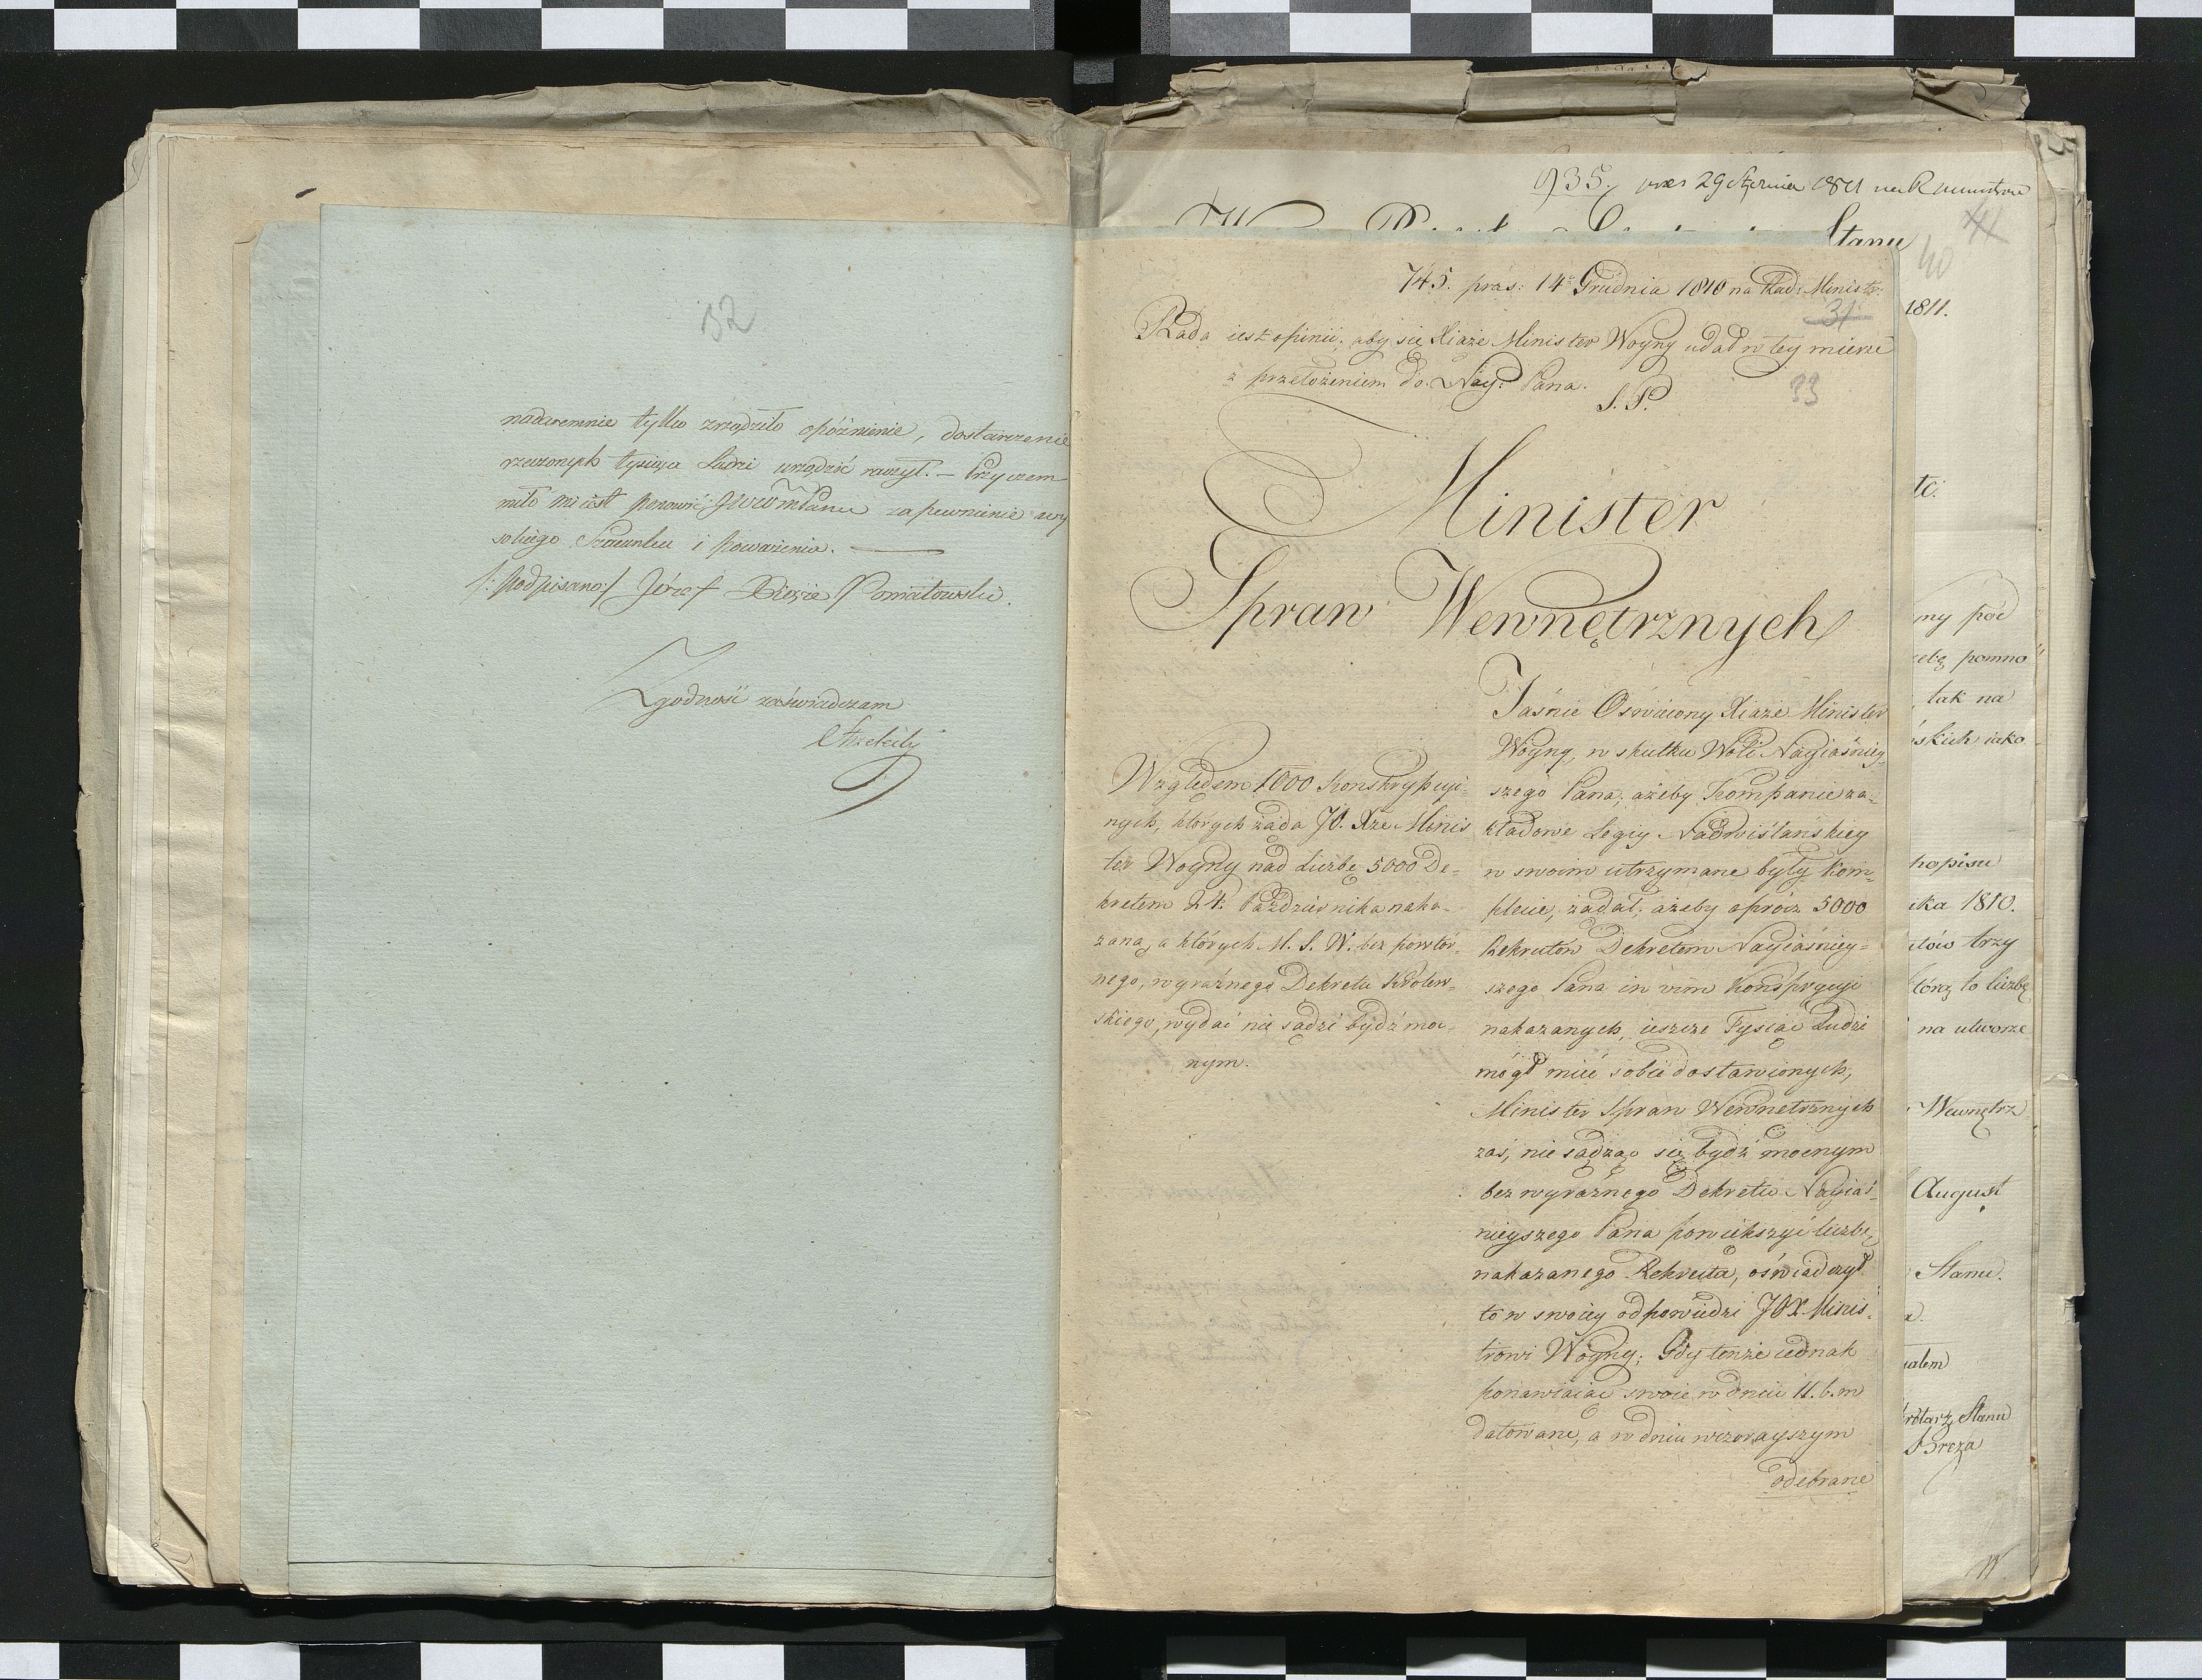 32
nadaremnie tylko zrządziło opóźnienie, dostarczenie
rzeczonych tysiąca Ludzi urządzić raczył. – Przyczem
miło mi iest ponowić JWWmPanu zapewnienie wy
sokiego Szacunku i poważenia.
/: podpisano :/ Józef Xiąże Poniatowski.
Zgodność zaświadczam
935. pras 29 Stycznia 1811 na R Ministrow
Stanu
41
40
745. præs: 14 Grudnia 1810 na Rad: Ministr:
31
Rada iest opinii, aby się Xiąże Minister Woyny udał w tey mierze
z przełożeniem do Nay: Pana.
S. P.
33
Minister
Spraw Wewnętrznych
Względem 1000 Konskrypcyi-
nych, których żąda JO. Xże Minis
ter Woyny nad liczbę 5000 De-
kretem 24. Października naka-
zaną, a których M. S. W. bez powtór-
nego, wyraźnego Dekretu Królew-
skiego, wydać nie sądzi bydź moc-
nym.
Jaśnie Oświecony Xiąże Minister
Woyny, w skutku Woli Nayiaśniey-
szego Pana, ażeby Kompanie za-
kładowe Legiy Nadwiślańskiey
w swoim utrzymane były kom-
plecie, żądał, ażeby oprócz 5000
Rekrutów Dekretem Nayiaśniey-
szego Pana in vim Konskrypcyi
nakazanych, ieszcze Tysiąc Ludzi
mógł mieć sobie dostawionych,
Minister Spraw Wewnętrznych
zaś, nie sądząc się bydź mocnym
bez wyraźnego Dekretu Nayiaś-
nieyszego Pana powiększyć liczbę
nakazanego Rekruta, oświadczył
to w swoiey odpowiedzi JOX Minis-
trowi Woyny; Gdy tenże iednak
ponawiaiąc swoie w dniu 11. b. m
datowane, a w dniu wczorayszym
odebrane
1811.
tc.
ny pod
pomno
tak na
skich iako
hopisu
ika 1810.
tów trzy
tórą to liczbę
na utworze
Wewnętrz
August
Stanu.
a.
ałem
krétarz Stanu
Breza